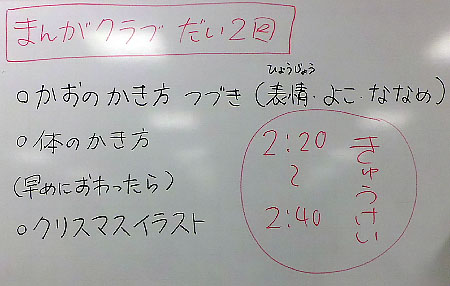 まんがクラブ だい2回
ひょうじょう
○かおのかき方 つづき(表情・よこ・ななめ)
○体のかき方
(早めにおわったら)
○クリスマスイラスト
2:20
~
2:40
きゅうけい